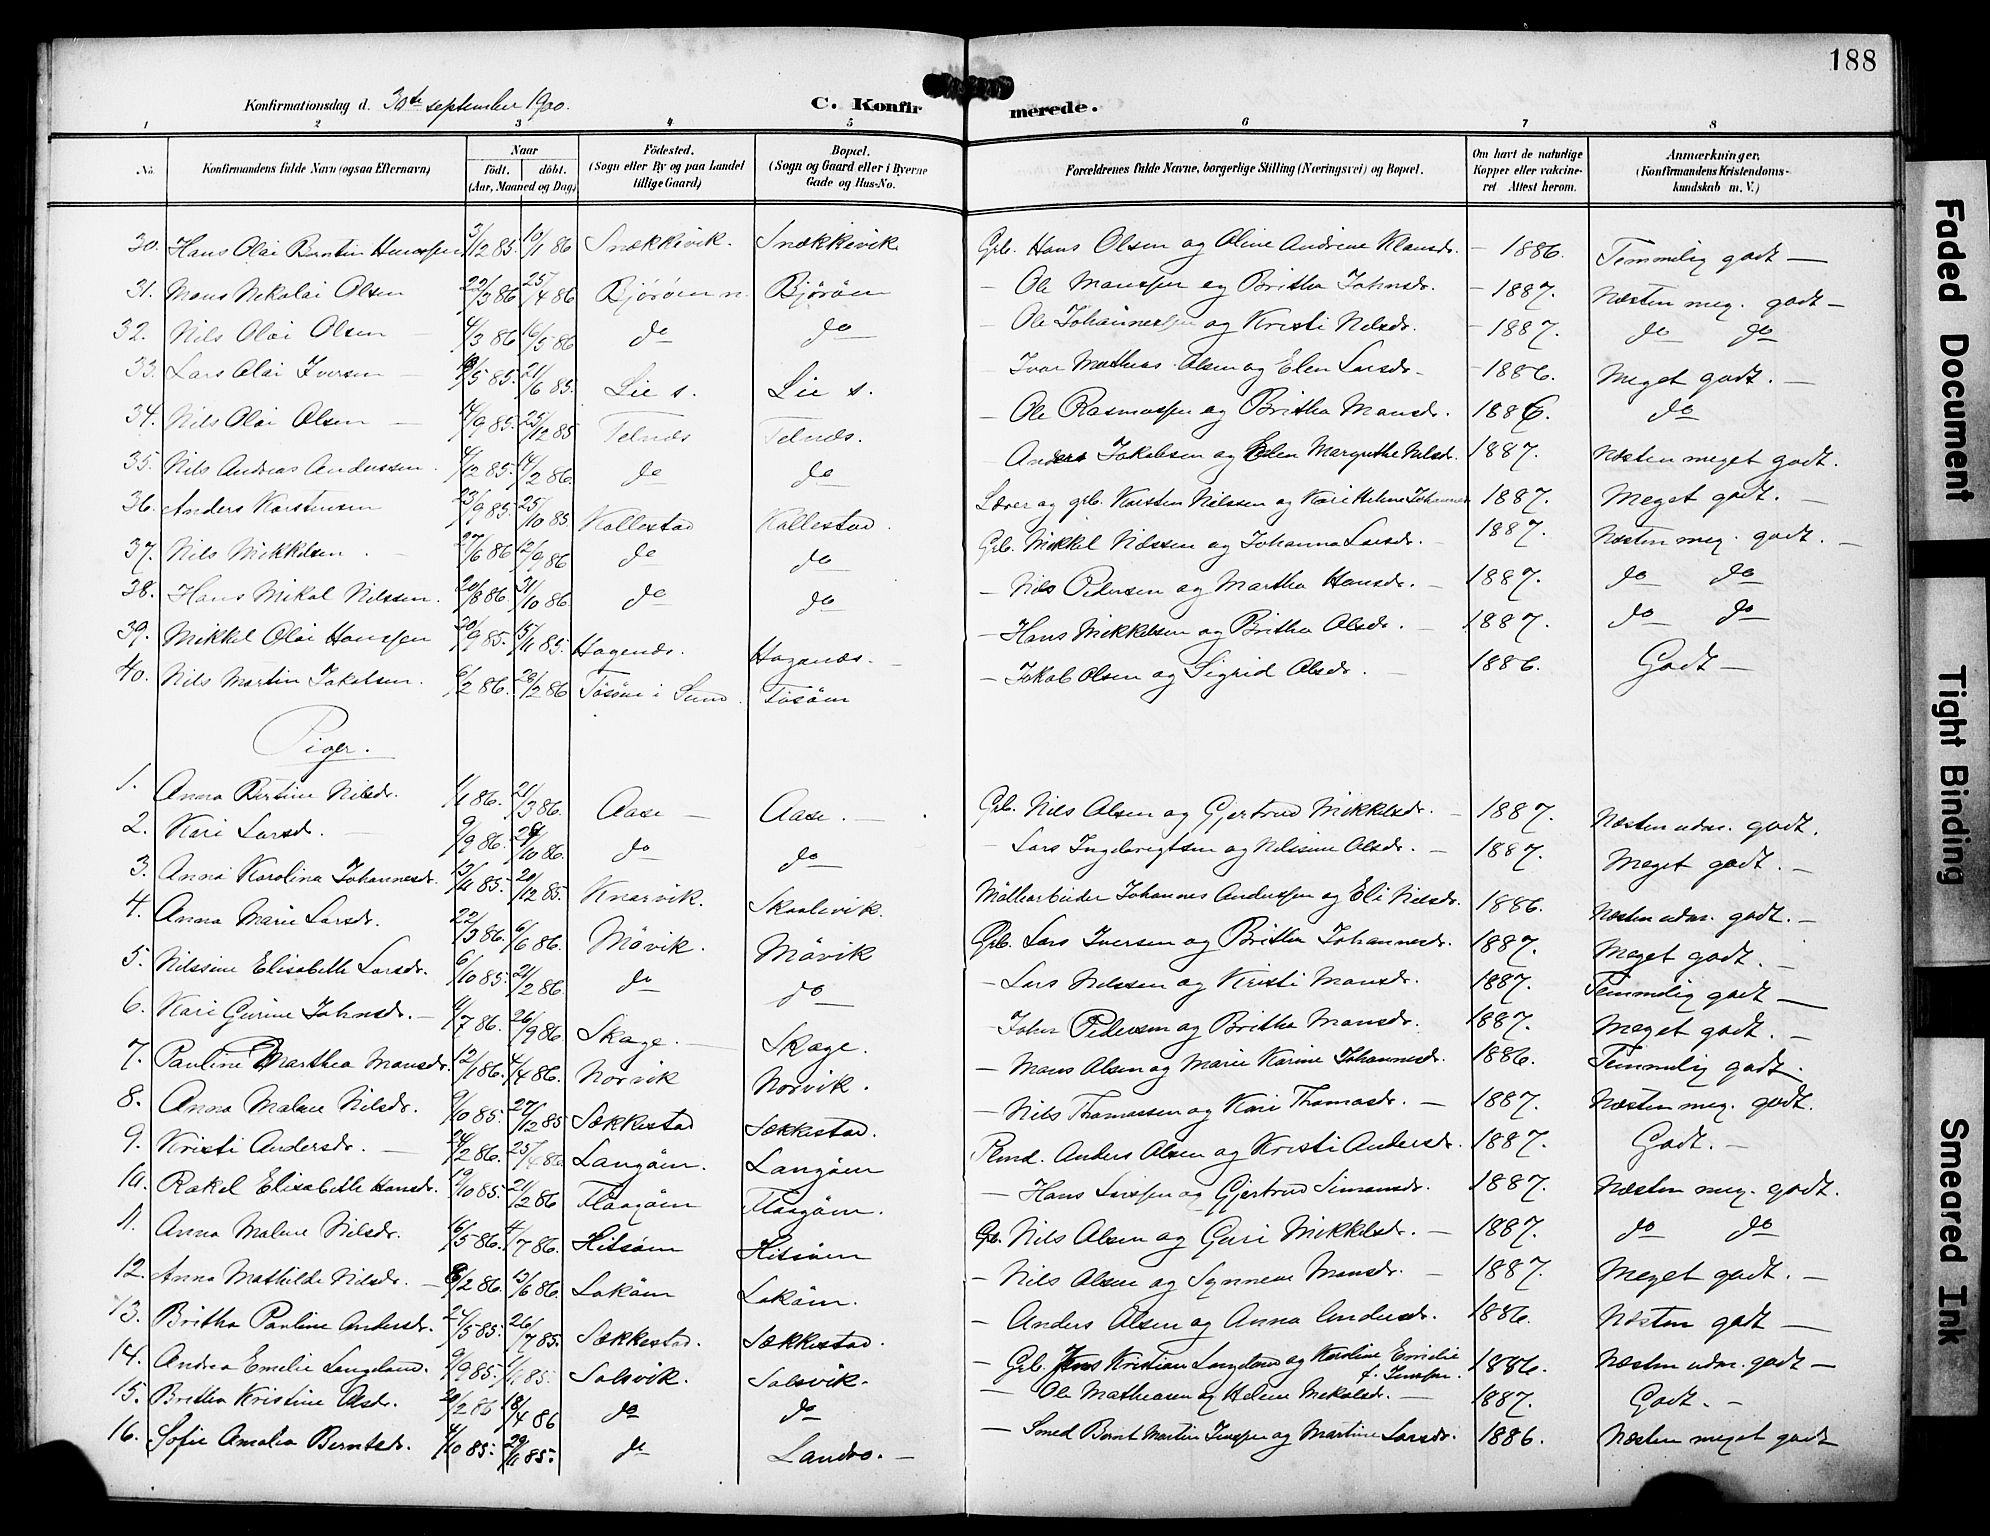 188
Konfirmationsdag d. 30te september 1900.
C. Konfirmerede.
1 2 3 4 5 6 7 8
No. Konfirmandens fulde Navn (ogsaa Efternavn) Naar födt. döbt. (Aar, Maaned og Dag) Födested. (Sogn eller By og paa Landet tillige Gaard) Bopæl. (Sogn og Gaard eller i Byerne Gade og Hus-No. Forældrenes fulde Navne, borgerlige Stilling (Næringsvei) og Bopæl. Om havt de naturlige Kopper eller vakcineret Attest herom. Anmærkninger, (Konfirmandens Kristendomskundskab m. V.)
30. Hans Olai Berntin Hanssen 3/12 85. 10/1 86 Snækkevik. Snækkevik Grb. Hans Olsen og Oline Andrine Klausdr. - 1886. Temmelig godt —
31. Mons Nikolai Olsen 22/3 86 25/4 86 Björöen n. Björöen — Ole Monssen og Britha Johnsdr. - 1887. Næsten meg. godt —
32. Nils Olai Olsen 4/3 86 16/5 86 do do — Ole Johannessen og Kristi Nilsdr. - 1887. do do
33. Lars Olai Iversen 5 85. 21/6 85. Lie s. Lie s. — Ivar Mathias Olsen og Elen Larsdr. - 1886. Meget godt. —
34. Nils Olai Olsen 14/9 85. 25/12 85 Telnæs Telnæs. — Ole Rasmussen og Britha Monsdr. 1886. do
35. Nils Andreas Anderssen. 4/12 85. 14/2 86 do do — Anders Jakobsen og Elen Margrethe Nilsdr. 1887. Næsten meget godt.
36. Anders Karstensen 23/9 85. 25/10 85. Kallestad Kallestad. Lærer og grb. Karsten Nilssen og Kari Helene 1887. Meget godt. —
37. Nils Mikkelsen. 27/6 86 12/9 86 do do Grb. Mikkel Nilssen og Johanna Larsdr. 1887. Næsten meg. godt. —
38. Hans Mikal Nilssen. 20/8 86. 31/10 86 do do — Nils Pedersen og Martha Hansdr. — 1887. do do
39. Mikkel Olai Hanssen 20/9 85. 15/11 85. Hagenæs. Hagenæs. — — Hans Mikkelsen og Britha Olsdr. - 1887. do do
40. Nils Martin Jakobsen. 6/2 86. 28/2 86 Tösöen i Sund Tösöen — Jakob Olsen og Sigrid Olsdr. 1886. Godt —
Piger.
1. Anna Bertine Nilsdr. 1/1 86. 21/3 86. Aase — Aase. — Grb. Nils Olsen og Gjertrud Mikkelsdr. - 1887. Næsten udm. godt.
2. Kari Larsdr. 9/9 86. 10 86. do do — Lars Ingebrigtsen og Nilssine Olsdr. — 1887. Meget godt. —
3. Anna Karolina Johannesdr. 13/11 85. 20/12 85. Knarvik. Skaalevik. Möllearbeider Johannes Anderssen og Eli Nilsdr. 1886. Næsten udm. godt. —
4. Anna Marie Larsdr. 22/3 86. 6/6 86. Mövik. Mövik Grb. Lars Iversen og Britha Johannesdr. 1887. Meget godt. —
5. Nilssine Elisabeth Larsdr. 6/10 85. 21/2 86. do do — Lars Nilssen og Kristi Monsdr. 1887. Temmelig godt —
6. Kari Gurine Johnsdr. — 7 86. 26/9 86. Skage. — Skage. — John Pedersen og Britha Monsdr. 1887. Meget godt. —
7. Pauline Marthea Monsdr. 12/1 86. 4/4 86. Norvik Norvik. — Mons Olsen og Marie Karine Johannesdr. 1886. Temmelig godt.
8. Anna Malene Nilsdr. 9/10 85. 27/12 85 Sækkestad Sækkestad. — Nils Thomassen og Kari Thomasdr. — 1887. Næsten meg. godt.
9. Kristi Andersdr. — 24/2 86. 25/4 86 Langöen. Langöen Pmd. Anders Olsen og Kristi Andersdr. 1887. Godt. —
10. Rakel Elisabeth Hansdr. 19/10 85. 21/2 86 Flaagöen Flaagöen. — Hans Larssen og Gjertrud Simonsdr. 1887. Næsten meg. godt.
11. Anna Malene Nilsdr. 16/5 86. 4/7 86. Hitsöen Hitsöen Gb. Nils Olsen og Guri Mikkelsdr. — 1887. do do
12. Anna Mathilde Nilsdr. — 2 86. 13/6 86. Loköen Loköen. — Nils Olsen og Synneve Monsdr. — 1887. Meget godt. —
13. Britha Pauline Andersdr. 27/5 85. 26/7 85. Sækkestad. Sækkestad. — Anders Olsen og Anna Andersdr. 1886. Næsten godt —
14. Andrea Emelie Langeland. 9/9 85. 1/11 85. Solsvik. Solsvik. — Grb. Jens Kristian Langeland og Karoline Emilie f. Jenssen. 1886. Næsten udm. godt —
15. Britha Kristine Olsdr. 20/2 86 18/4 86 do do — Ole Mathiasen og Helene Nikolsdr. — 1887. Godt. —
16. Sofie Amalia Berntsdr. 4/10 85. 29/11 85. do Landro. — — Smed Bernt Martin Jenssen og Martine Larsdr. 1886. Næsten meget godt
Faded Document
Tight Binding
Smeared Ink